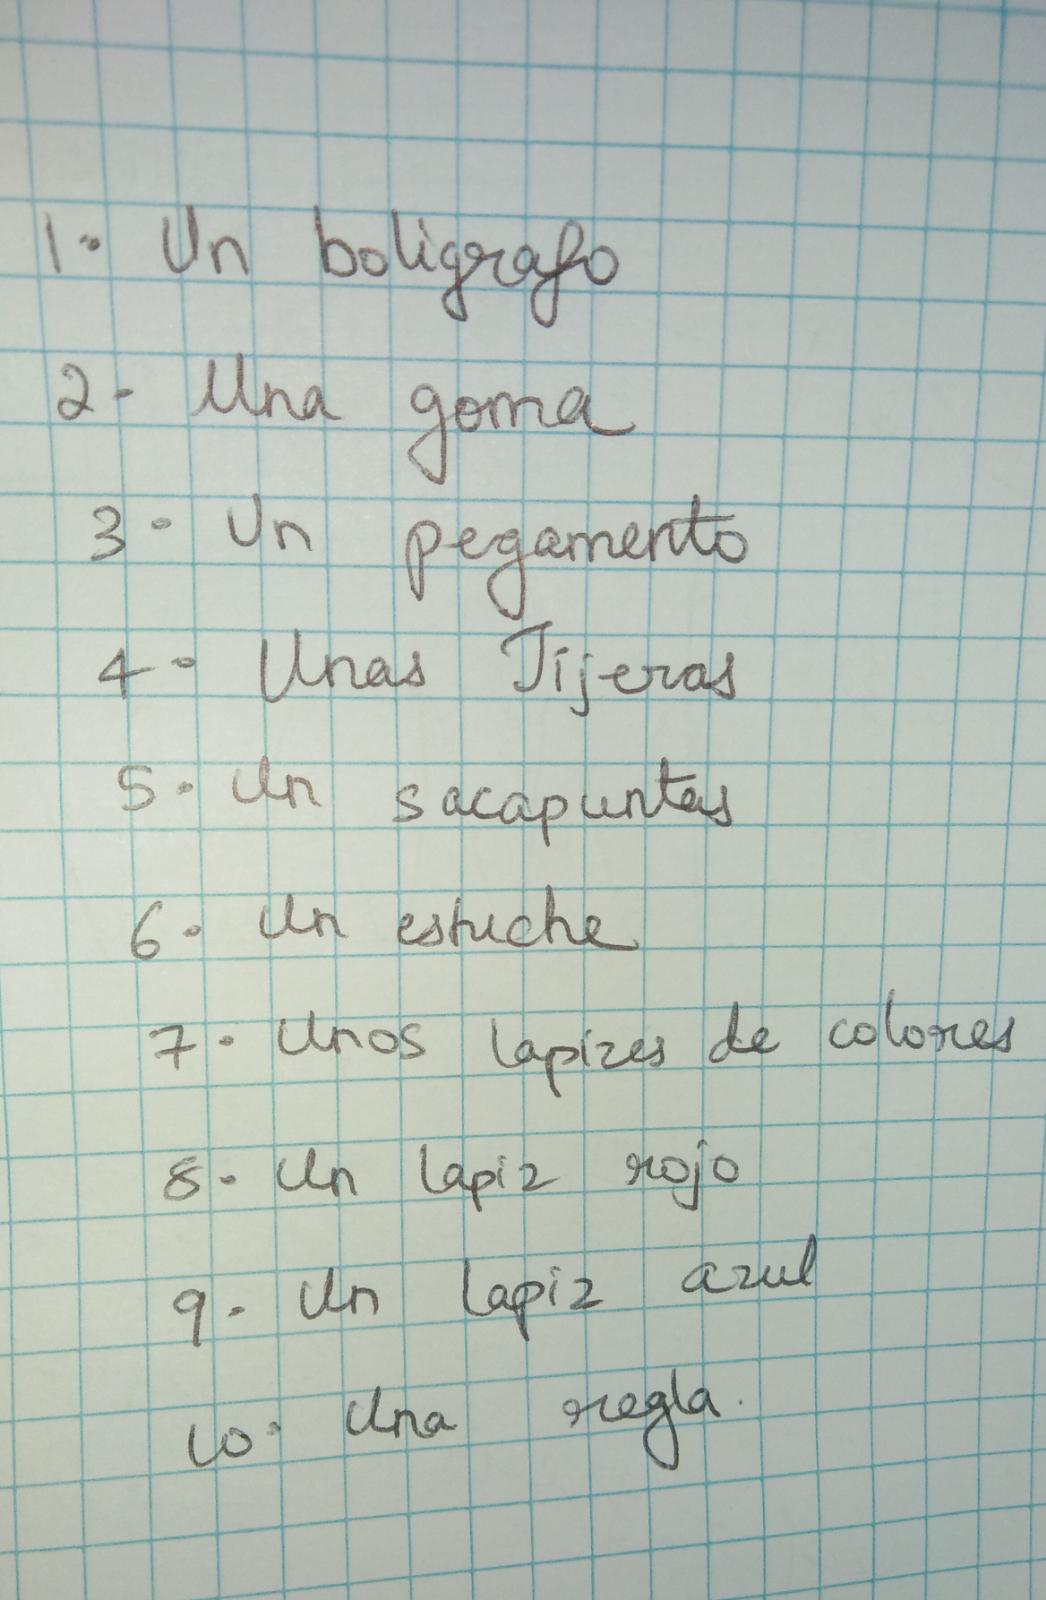 1. Un boligrafo
2. Una goma
3. Un pegamento
4. Unas Tijeras
5. Un sacapuntas
6. Un estuche
7. Unos lapizes de colores
8. Un lapiz rojo
9. Un lapiz azul
10. Una regla.